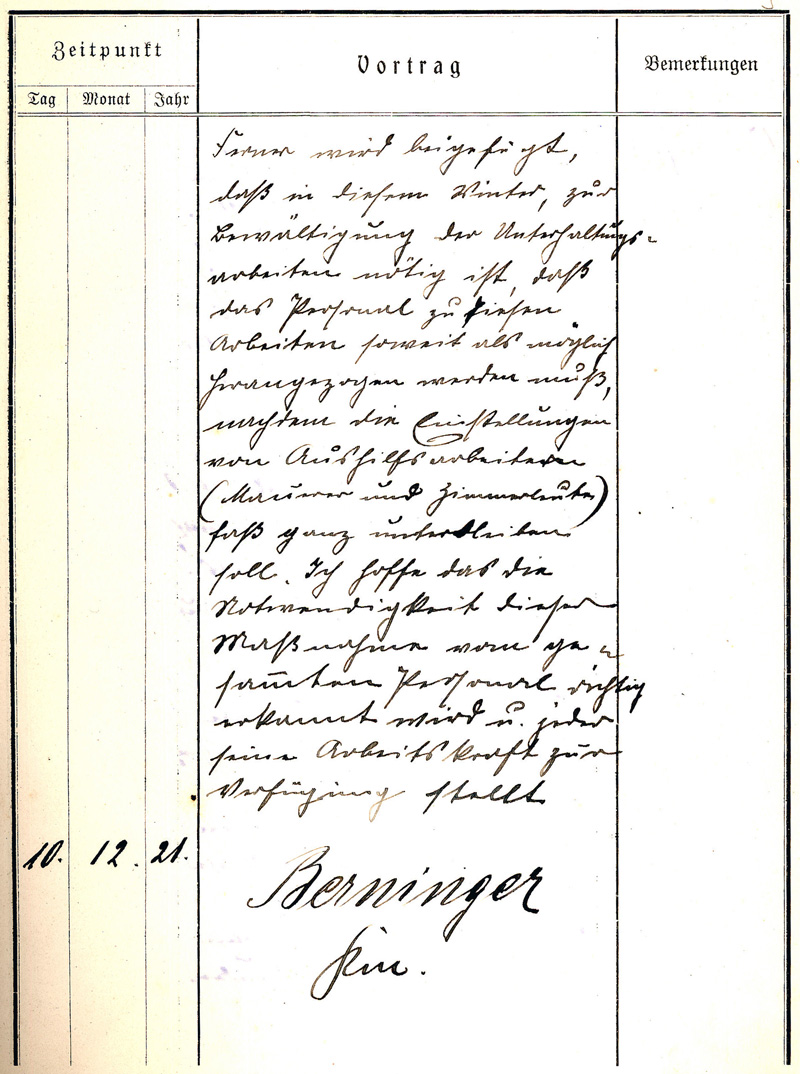 Zeitpunkt
Vortrag
Bemerkungen
Tag Monat Jahr
Ferner wird beigefügt,
daß in diesem Winter, zur
Bewältigung der Unterhaltungs-
arbeiten nötig ist, daß
das Personal zu diesen
Arbeiten soweit als möglich
herangezogen werden muß,
nachdem die Einstellungen
von Aushilfsarbeitern
(Mauerer und Zimmerleute)
faßt ganz unterbleiben
soll. Ich hoffe das die
Notwendigkeit dieser
Maßnahme vom ge-
samten Personal richtig
erkannt wird u. jeder
seine Arbeitskraft zur
Verfügung stellt
10. 12. 21.
Berninger